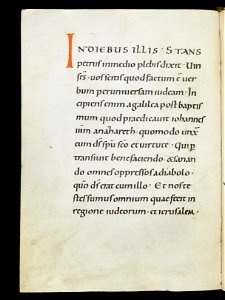 INDIEBUS ILLIS · STANS
petrus inmedio plebis dixit · Uiri
frs̄ · uos scitis quod factum ē uer
bum per uniuersam iudeam · In
cipiens enim agalilea post baptis
mum quod praedicauit iohannes
ihm̄ anazareth · quomodo unx̄
eum dS̄ spu̅ sc̅o et uirtute · Qui p̱
transiuit benefaciendo & sanan
do omnes oppressos adiabolo ·
qm̄ dS̄ erat cum illo · Et nos te
stes sumus omnium quae fecit in
regione iudeorum · et ierusalem ·